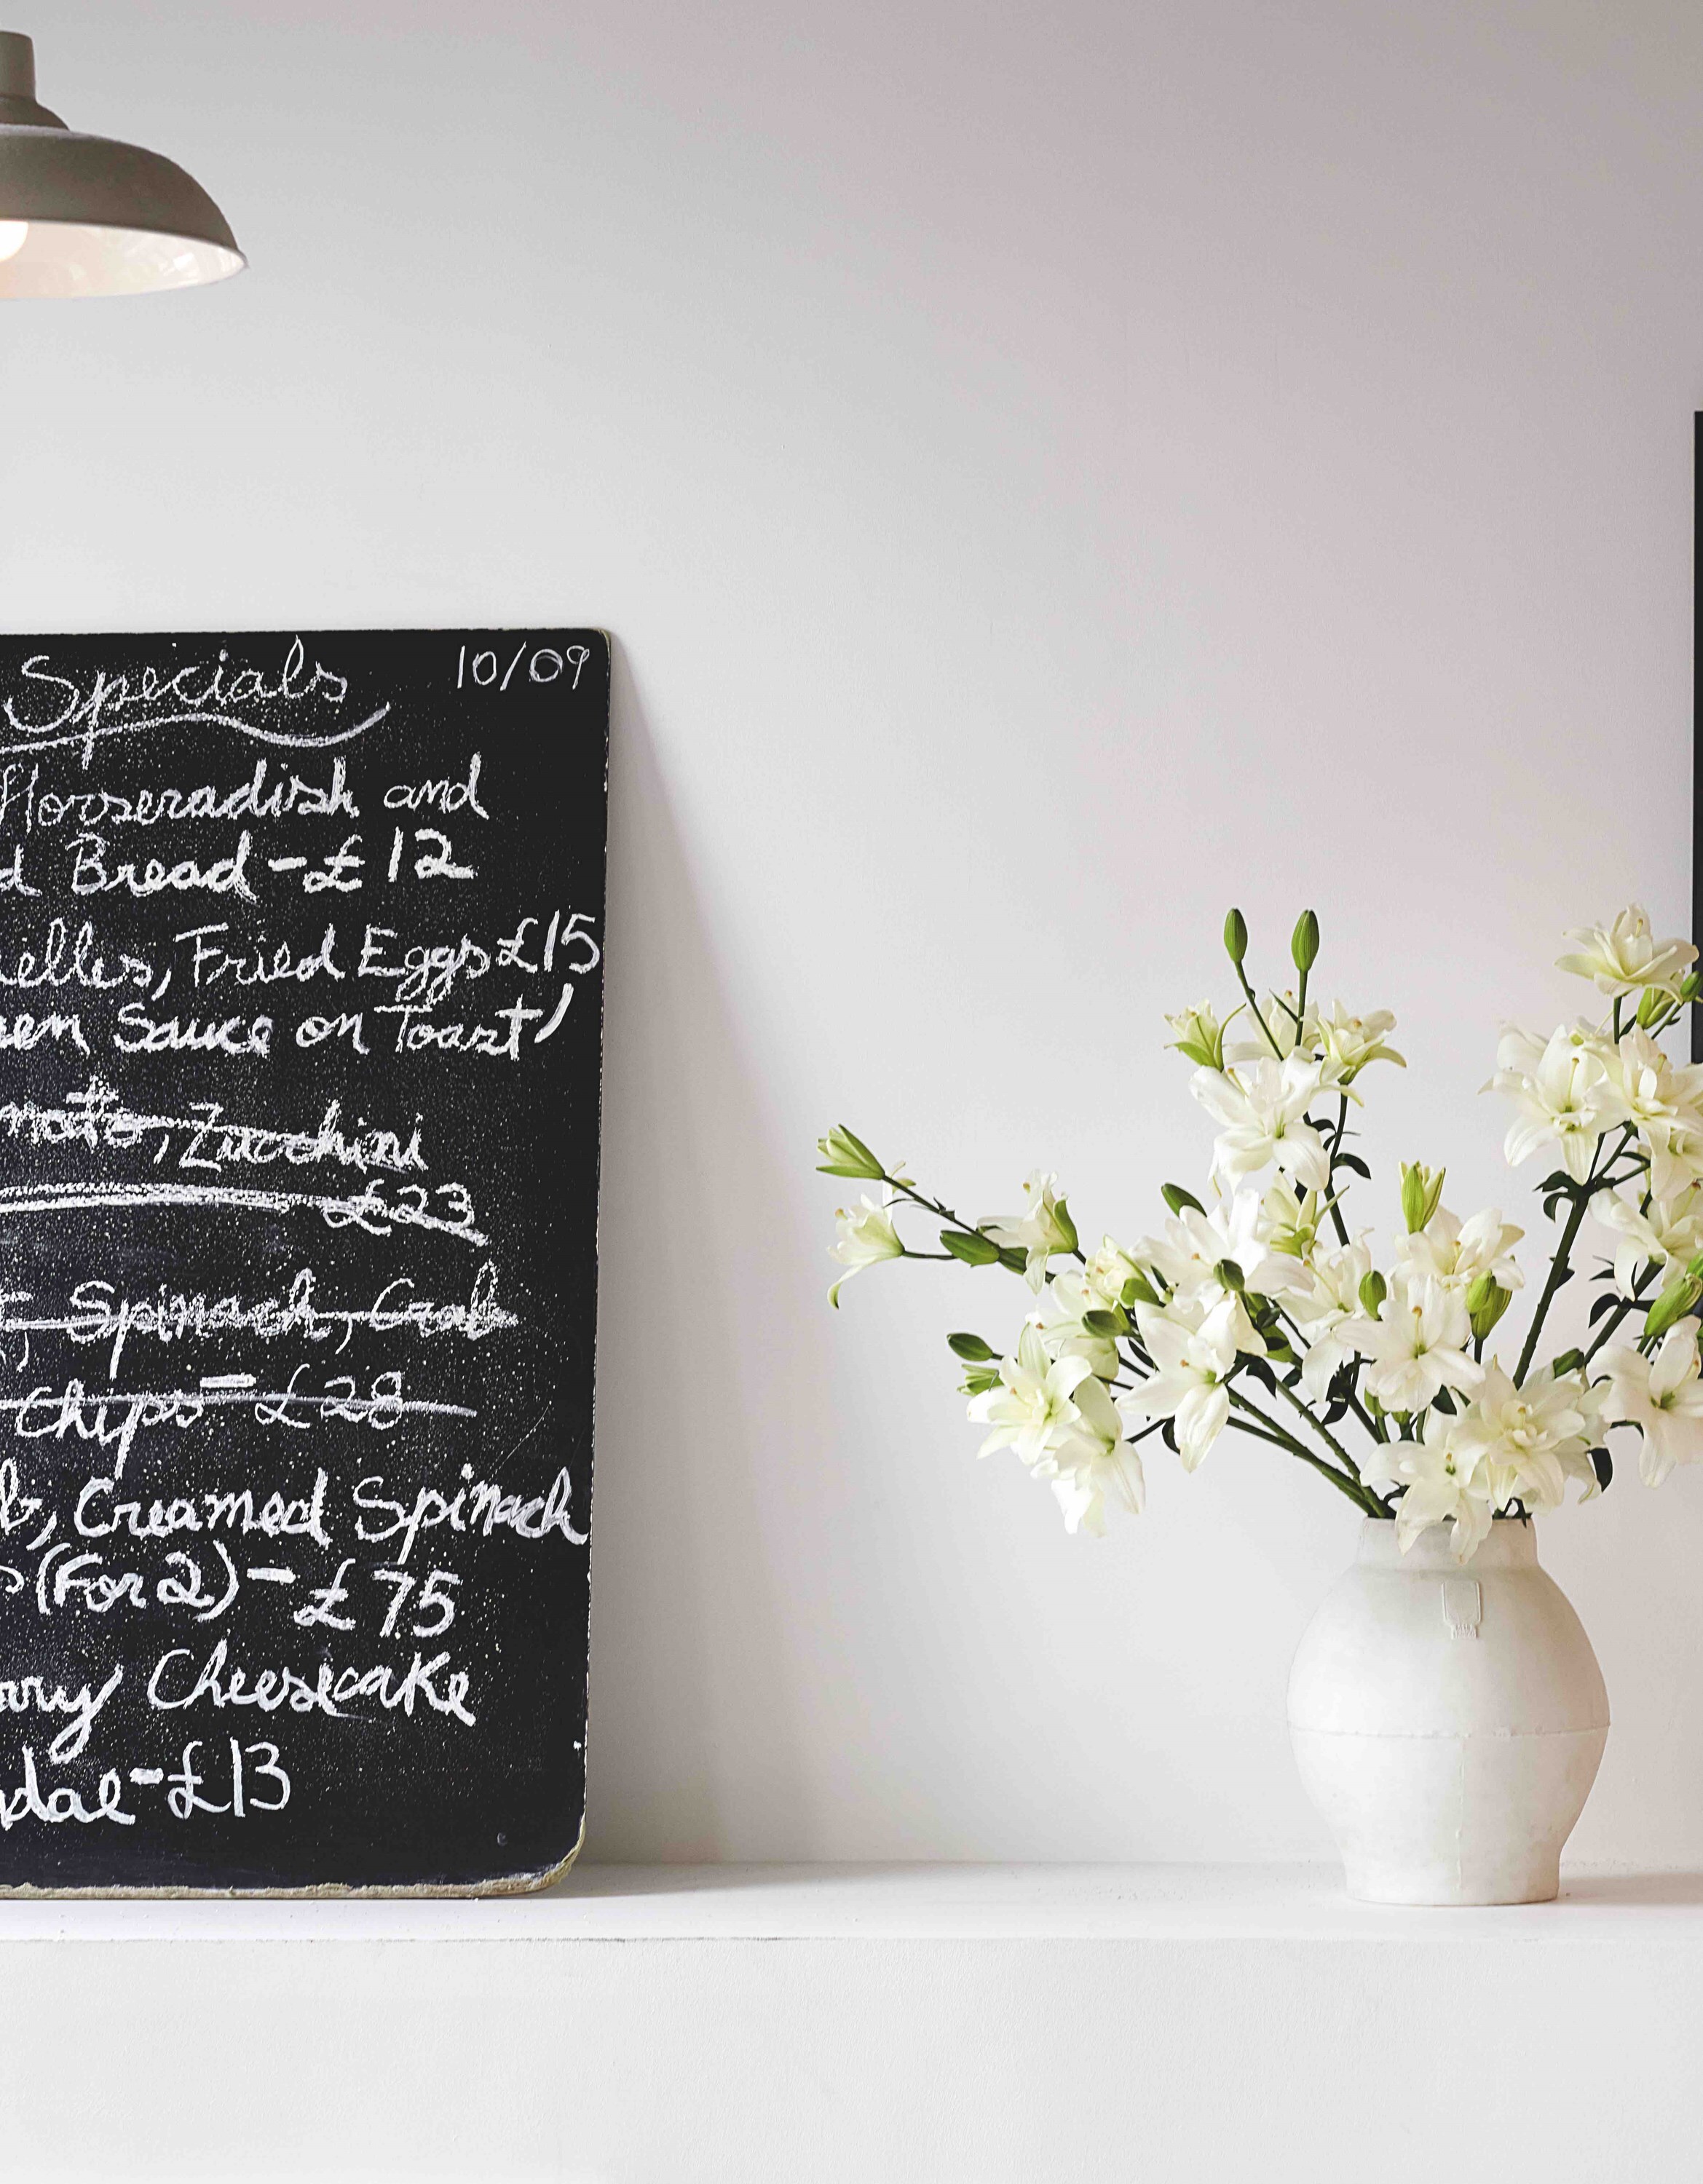 Specials 10/09
Horseradish and
d Bread - £12
ielles, Fried Eggs £15
een Sauce on Toast
mato, Zucchini
£23
, Spinach, Crab
Chips - £28
b, Creamed Spinach
s (For 2) - £75
rry Cheesecake
ndae - £13